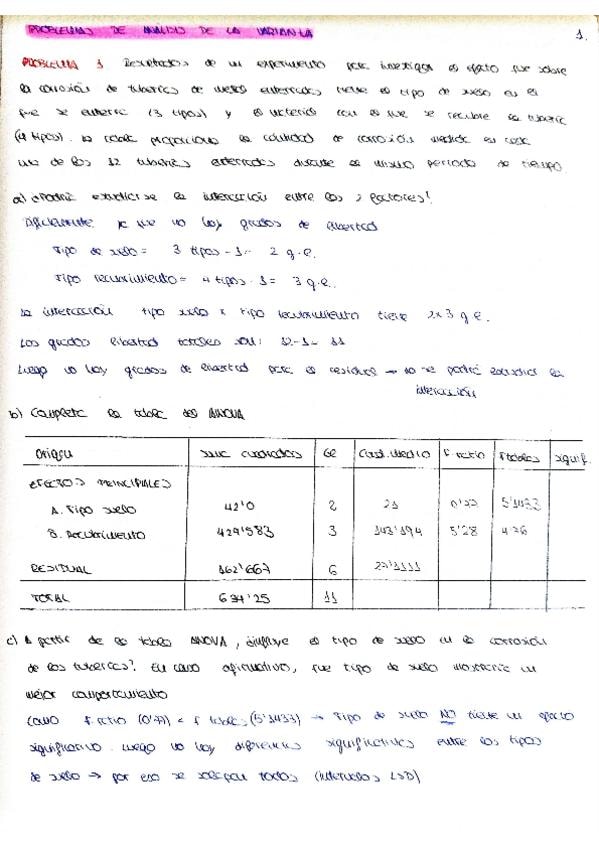 PROBLEMAS DE ANÁLISIS DE LA VARIANZA 1.
PROBLEMA 1 Resultados de un experimento para investigar el efecto que sobre
la corrosión de tuberías de metal enterradas tiene el tipo de suelo en el
que se entierra (3 tipos) y el material con el que se recubre la tubería
(4 tipos). La tabla proporciona la cantidad de corrosión medida en cada
una de las 12 tuberías enterradas durante el mismo periodo de tiempo
a) ¿Podría estudiarse la interacción entre los 2 factores?
Dificilmente ya que no hay grados de libertad
Tipo de suelo = 3 tipos - 1 = 2 g.l.
Tipo recubrimiento = 4 tipos - 1 = 3 g.l.
La interacción tipo suelo x tipo recubrimiento tiene 2x3 g.l.
Los grados libertad totales son: 12-1 = 11
Luego no hay grados de libertad para el residual → no se podrá estudiar la
interacción
b) Completa la tabla del ANOVA
Origen Suma cuadrados GL Cuad. Medio F ratio F tablas signif.
EFECTOS PRINCIPALES
A. Tipo suelo 42'0 2 21 0'77 5'1433
B. Recubrimiento 429'583 3 143'194 5'28 4'76
RESIDUAL 162'667 6 27'1111
TOTAL 634'25 11
c) A partir de la tabla ANOVA, ¿influye el tipo de suelo en la corrosión
de las tuberías? En caso afirmativo, que tipo de suelo mostraría un
mejor comportamiento
Como F.ratio (0'77) < F tablas (5'1433) → Tipo de suelo NO tiene un efecto
significativo. Luego no hay diferencias significativas entre los tipos
de suelo → por eso se solapan todos (intervalos LSD)